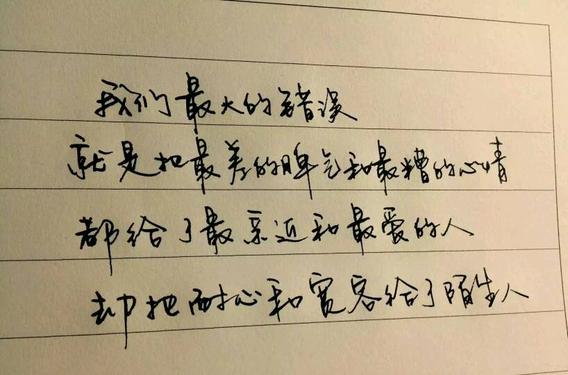 我们最大的错误
就是把最差的脾气和最糟的心情
都给了最亲近和最爱的人
却把耐心和宽容给了陌生人